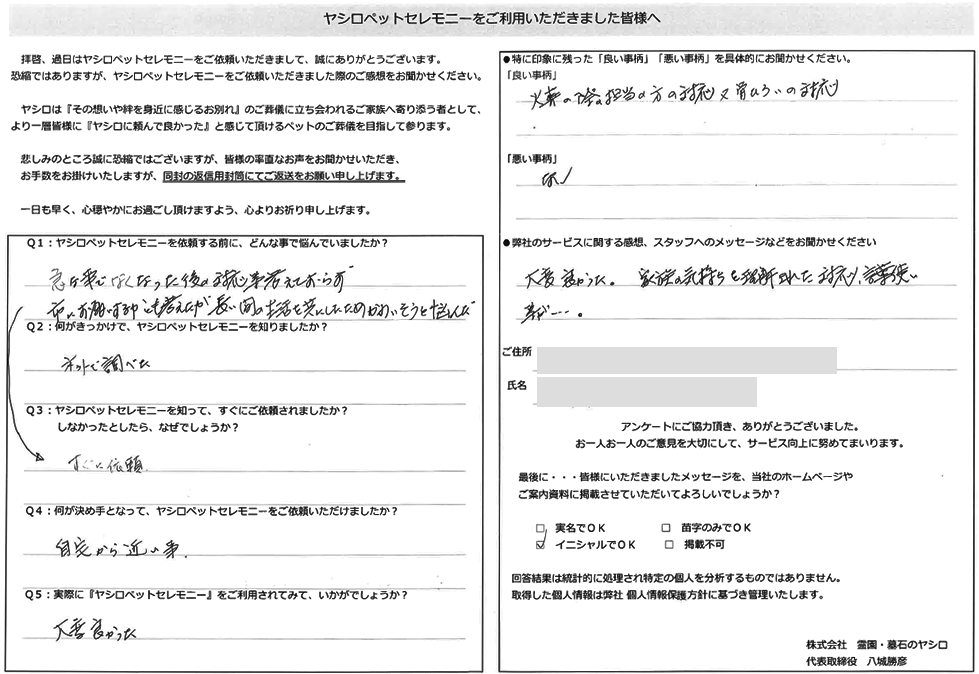 ヤシロペットセレモニーをご利用いただきました皆様へ
拝啓、過日はヤシロペットセレモニーをご依頼いただきまして、誠にありがとうございます。
恐縮ではありますが、ヤシロペットセレモニーをご依頼いただきました際のご感想をお聞かせください。
ヤシロは『その想いや絆を身近に感じるお別れ』のご葬儀に立ち会われるご家族へ寄り添う者として、
より一層皆様に『ヤシロに頼んで良かった』と感じて頂けるペットのご葬儀を目指して参ります。
悲しみのところ誠に恐縮ではございますが、皆様の率直なお声をお聞かせいただき、
お手数をお掛けいたしますが、同封の返信用封筒にてご返送をお願い申し上げます。
一日も早く、心穏やかにお過ごし頂けますよう、心よりお祈り申し上げます。
Q1：ヤシロペットセレモニーを依頼する前に、どんな事で悩んでいましたか？
急な事でなくなった後の対応事考えておらず
市にお願いする や とも考えたが長い間の生活を共にしたためかわいそうと悩んだ
Q2：何がきっかけで、ヤシロペットセレモニーを知りましたか？
ネットで調べた
Q3：ヤシロペットセレモニーを知って、すぐにご依頼されましたか？
しなかったとしたら、なぜでしょうか？
すぐに依頼
Q4：何が決め手となって、ヤシロペットセレモニーをご依頼いただけましたか？
自宅から近い事.
Q5：実際に『ヤシロペットセレモニー』をご利用されてみて、いかがでしょうか？
大変良かった
●特に印象に残った「良い事柄」「悪い事柄」を具体的にお聞かせください。
「良い事柄」
火葬の際の担当の方の対応又骨ひろいの対応
「悪い事柄」
なし
●弊社のサービスに関する感想、スタッフへのメッセージなどをお聞かせください
大変良かった。家族の気持ちを された対応、言葉使い
等が…。
ご住所
氏名
アンケートにご協力頂き、ありがとうございました。
お一人お一人のご意見を大切にして、サービス向上に努めてまいります。
最後に・・・皆様にいただきましたメッセージを、当社のホームページや
ご案内資料に掲載させていただいてよろしいでしょうか？
□ 実名でOK □ 苗字のみでOK
☑ イニシャルでOK □ 掲載不可
回答結果は統計的に処理され特定の個人を分析するものではありません。
取得した個人情報は弊社 個人情報保護方針に基づき管理いたします。
株式会社 霊園・墓石のヤシロ
代表取締役 八城勝彦